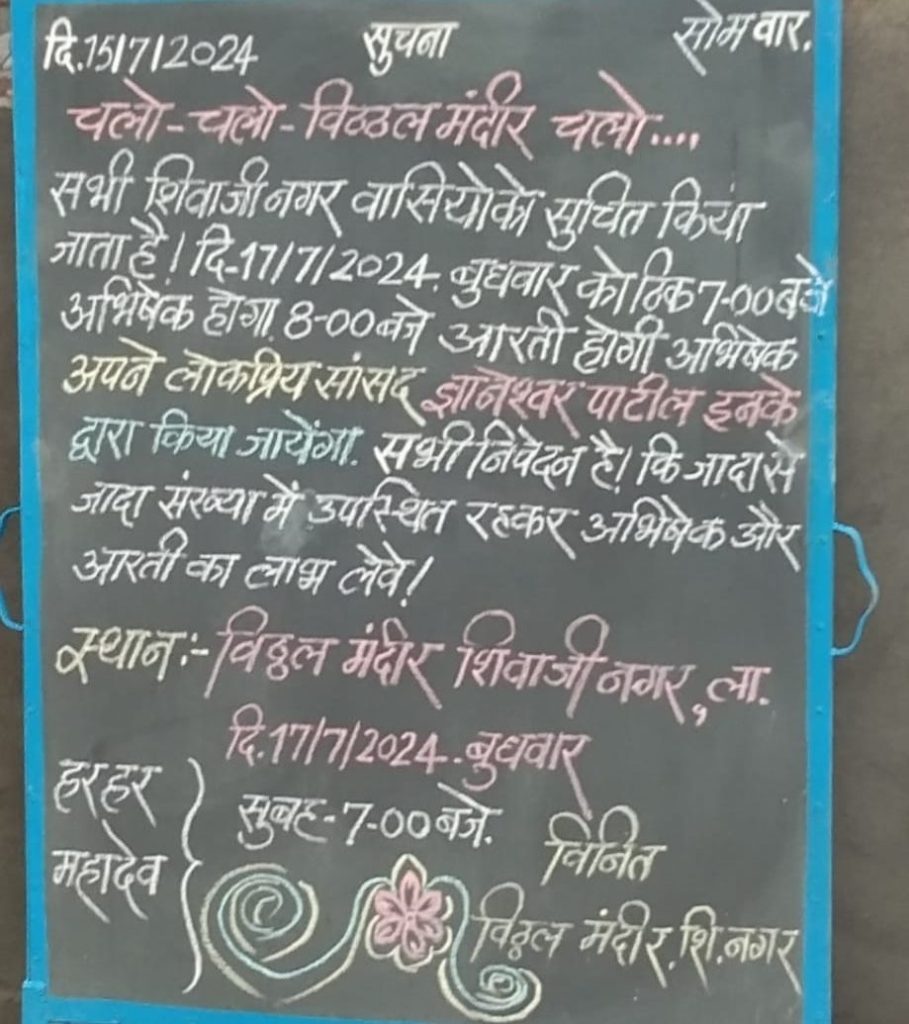 दि.15/7/2024 सुचना सोमवार.
चलो-चलो-विठ्ठल मंदीर चलो....
सभी शिवाजी नगर वासियोको सुचित किया
जाता है! दि.17/7/2024. बुधवार को ठिक 7-00 बजे
अभिषेक होगा. 8-00 बजे आरती होगी अभिषेक
अपने लोकप्रिय सांसद ज्ञानेश्वर पाटील इनके
द्वारा किया जायेंगा. सभी निवेदन है! कि जादा से
जादा संख्या में उपस्थित रहकर अभिषेक और
आरती का लाभ लेवे!
स्थान:- विठ्ठल मंदीर शिवाजी नगर, ला.
दि.17/7/2024. बुधवार
सुबह-7-00 बजे.
हर हर
महादेव
विनित
विठ्ठल मंदीर, शि.नगर